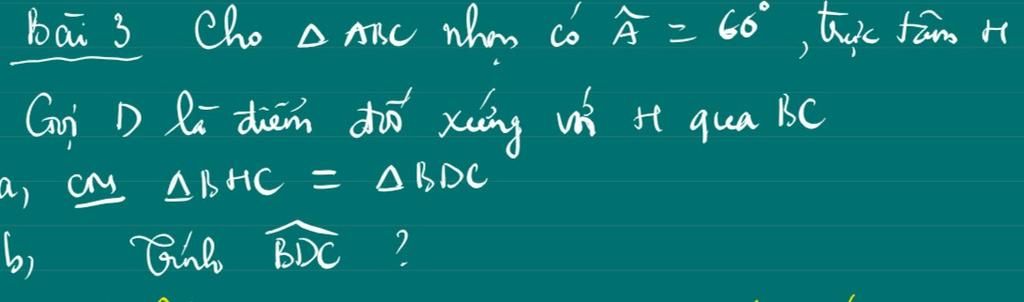 Bài 3 Cho △ ABC nhọn có Â = 60°, trực tâm H
Gọi D là điểm đối xứng với H qua BC
a, CM △BHC = △BDC
b, Tính \widehat{BDC} ?